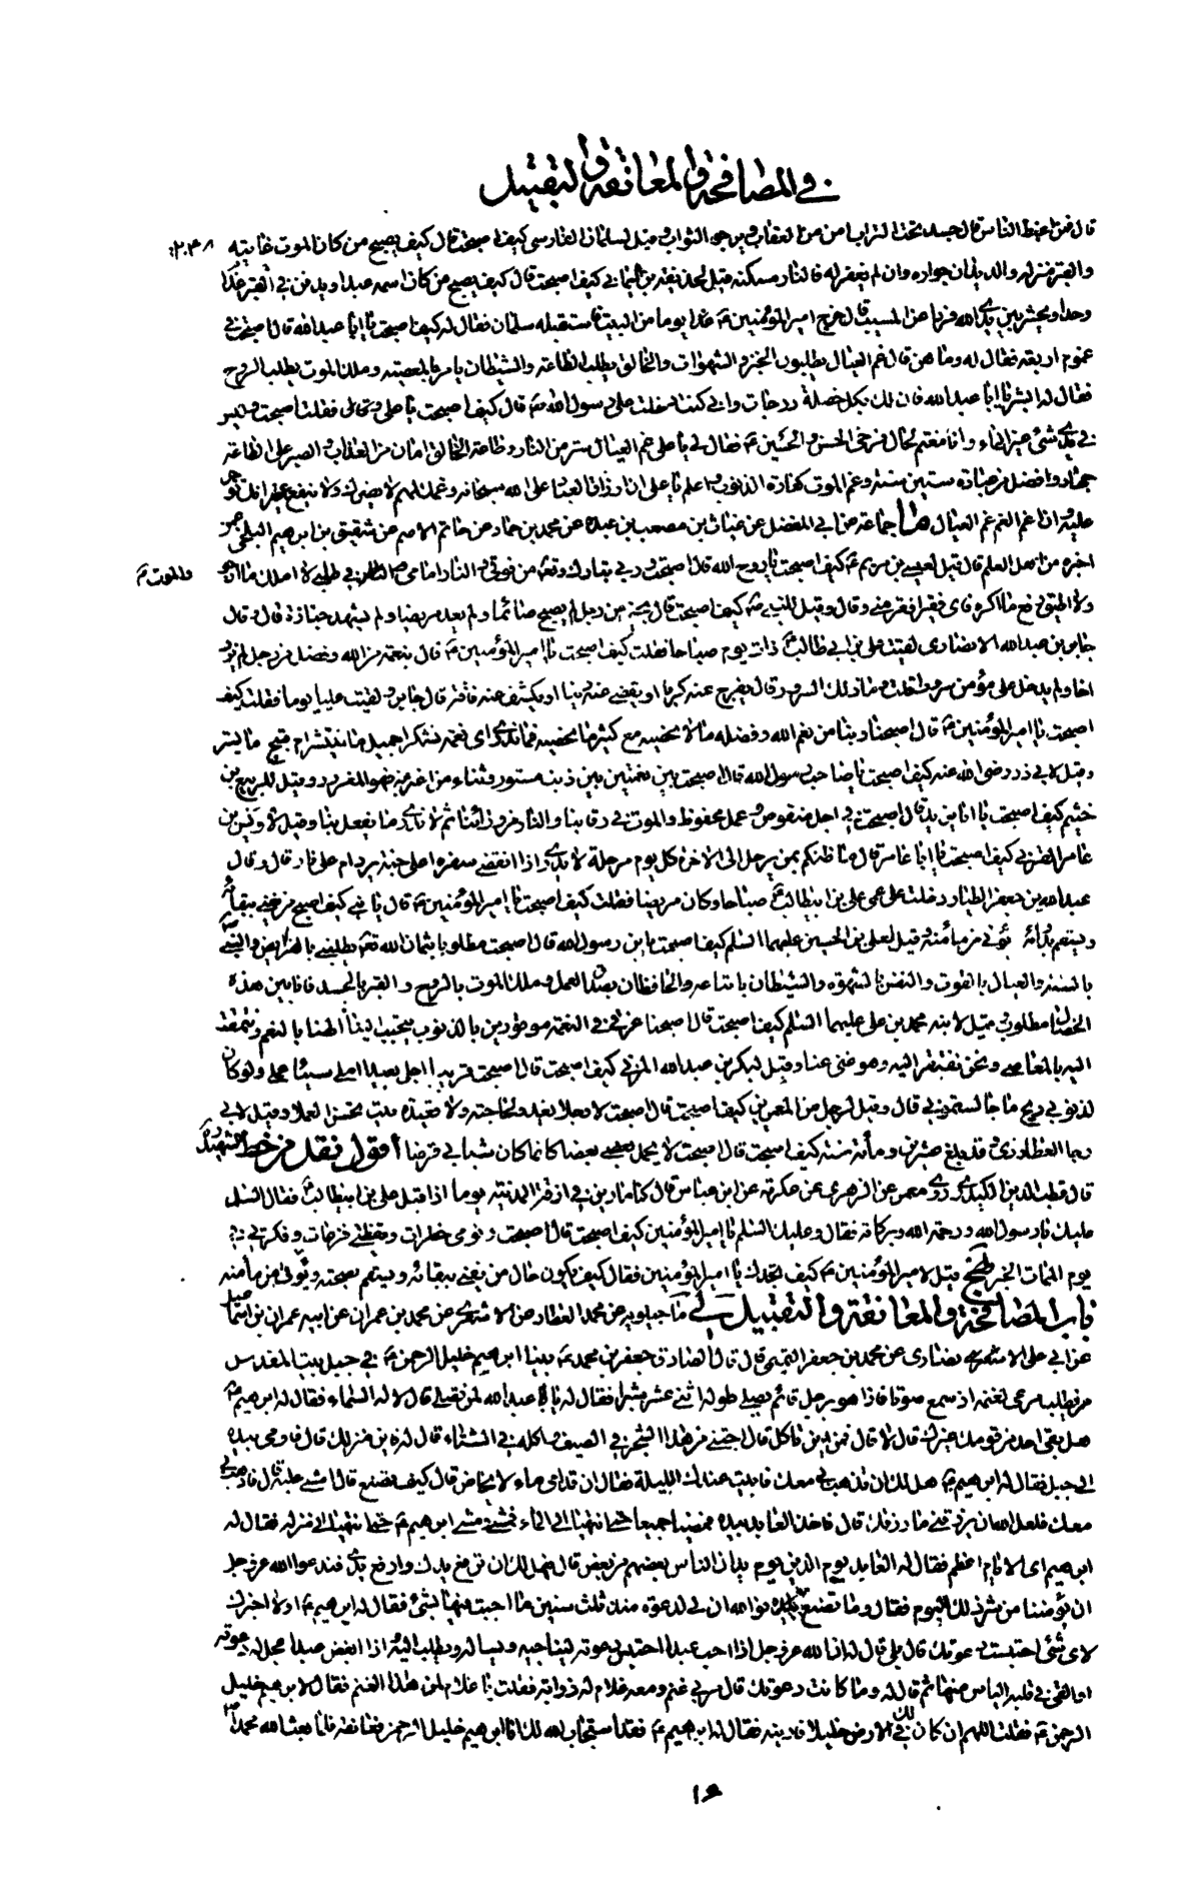 في المصافحة والمعانقة والتقبيل
قال فمن اغبط الناس قال جسد تحت التراب امن من العقاب ويرجو الثواب وقيل لسلمان الفارسي كيف اصبحت قال كيف يصبح من كان الموت غايته
والقبر منزله والديدان جواره وان لم يغفر له فالنار مسكنه وقيل لحذيفة بن اليماني كيف اصبحت قال كيف يصبح من كان اسمه عبدا ويدفن في القبر غدا
وحدا ويحشر بين يدي الله فردا عن المسيب قال خرج امير المؤمنين ع غدا يوما من البيت فاستقبله سلمان فقال له كيف اصبحت يا ابا عبد الله قال اصبحت في
غموم اربعة فقال له وما هن قال غم العيال يطلبون الخبز والشهوات والخالق يطلب الطاعة والشيطان يامر بالمعصية وملك الموت يطلب الروح
فقال له ابشر يا ابا عبد الله فان لك بكل خصلة درجات واني كنت دخلت على رسول الله ص قال كيف اصبحت يا علي فقلت اصبحت وليس
في يدي شئ غير الماء وانا مغتم لحال فرخي الحسن والحسين ع فقال لي يا علي غم العيال ستر من النار وطاعة الخالق امان من العذاب والصبر على الطاعة
جهاد وافضل من عبادة ستين سنة وغم الموت كفارة الذنوب واعلم يا علي ان ارزاق العباد على الله سبحانه وغمك لهم لا يضرك ولا ينفع غير انك توجر
عليه وان اغم الغم غم العيال ما جماعة عن ابي المفضل عن غياث بن مصعب بن عبدة عن محمد بن حماد عن حاتم الاصم عن شقيق بن ابرهيم البلخي عمن
اخبره من اهل العلم قال قيل لعيسى بن مريم ع كيف اصبحت يا روح الله قال اصبحت وربي تبارك وتعالى من فوقي والنار امامي والموت في طلبي لا املك ما ارجو
ولا اطيق دفع ما اكره فاي فقير افقر مني وقال وقيل للنبي ص كيف اصبحت قال بخير من رجل لم يصبح صائما ولم يعد مريضا ولم يشهد جنازة قال وقال
جابر بن عبد الله الانصاري لقيت علي بن ابي طالب ع ذات يوم صباحا فقلت كيف اصبحت يا امير المؤمنين ع قال بنعمة من الله وفضل من رجل لم يزر
اخا ولم يدخل على مؤمن سرورا قلت وما ذلك السرور قال يفرج عنه كربا او يقضي عنه دينا او يكشف عنه فاقة قال جابر ولقيت عليا يوما فقلت كيف
اصبحت يا امير المؤمنين ع قال اصبحنا وبنا من نعم الله وفضله ما لا نحصيه مع كثير ما نحصيه فما ندري اي نعمة نشكر اجميل ما ينشر ام قبيح ما يستر
وقيل لابي ذر رضي الله عنه كيف اصبحت يا صاحب رسول الله قال اصبحت بين نعمتين بين ذنب مستور وثناء من اغتر به فهو المغرور وقيل للربيع بن
خثيم كيف اصبحت يا ابا يزيد قال اصبحت في اجل منقوص وعمل محفوظ والموت في رقابنا والنار من ورائنا ثم لا ندري ما يفعل بنا وقيل لاويس بن
عامر القرني كيف اصبحت يا ابا عامر قال ما ظنكم بمن يرحل الى الاخرة كل يوم مرحلة لا يدري اذا انقضى سفره اعلى جنة يرد ام على نار قال وقال
عبد الله بن جعفر الطيار دخلت على عمي علي بن ابيطالب ع صباحا وكان مريضا فقلت كيف اصبحت يا امير المؤمنين ع قال يا بني كيف اصبح من يفنى ببقائه
ويسقم بدوائه ويؤتى من مأمنه وقيل لعلي بن الحسين عليهما السلم كيف اصبحت يا بن رسول الله قال اصبحت مطلوبا بثمان الله تعالى يطلبني بالفرائض والنبي ص
بالسنة والعيال بالقوت والنفس بالشهوة والشيطان باتباعه والحافظان بصدق العمل وملك الموت بالروح والقبر بالجسد فانا بين هذه
الخصال مطلوب وقيل لابنه محمد بن علي عليهما السلم كيف اصبحت قال اصبحنا غرقى في النعمة موفورين بالذنوب يتحبب الينا الهنا بالنعم ونتمقت
اليه بالمعاصي ونحن نفتقر اليه وهو غني عنا وقيل لبكر بن عبد الله المزني كيف اصبحت قال اصبحت قريبا اجلي بعيدا املي سيئا عملي ولو كان
لذنوبي ريح ما جالستموني قال وقيل لرجل من المعمرين كيف اصبحت قال اصبحت لا رجلا
رجا العطاردي وقد بلغ عشرين ومأة سنة كيف اصبحت قال اصبحت لا يحمل بعضي بعضا كانما كان شبابي قرضا اقول نقل من خط الشهيد ره
قال قطب الدين الكيدري روى معمر عن الزهري عن عكرمة عن ابن عباس قال كنا مارين في ازقة المدينة يوما اذ اقبل علي بن ابيطالب ع فقال السلم
عليك يا رسول الله ورحمة الله وبركاته فقال وعليك السلم يا امير المؤمنين كيف اصبحت قال اصبحت ونومي خطرات ويقظتي فزعات وفكرتي في
يوم الممات الخبر نهج قيل لامير المؤمنين ع كيف تجدك يا امير المؤمنين فقال كيف يكون حال من يفنى ببقائه ويسقم بصحته ويؤتى من مأمنه
باب المصافحة والمعانقة والتقبيل لي ماجيلويه عن محمد العطار عن الاشعري عن محمد بن عمران عن ابيه عمران بن اسماعيل
عن ابي علي الانصاري عن محمد بن جعفر التميمي قال قال الصادق جعفر بن محمد ع بينا ابرهيم خليل الرحمن ع في جبل بيت المقدس
يطلب مرعى لغنمه اذ سمع صوتا فاذا هو برجل قائم يصلي طوله اثنى عشر شبرا فقال له يا عبد الله لمن تصلي قال لاله السماء فقال له ابرهيم ع
هل بقي احد من قومك غيرك قال لا قال فمن اين تاكل قال اجتني من هذا الشجر في الصيف واكله في الشتاء قال له فاين منزلك قال فاومى بيده
الى جبل فقال له ابرهيم ع هل لك ان تذهب بي معك فابيت عندك الليلة فقال ان قدامي ماء لا يخاض قال كيف تصنع قال امشي عليه قال فاذهب بي
معك فلعل الله ان يرزقني ما رزقك قال فاخذ العابد بيده فمضيا جميعا حتى انتهيا الى الماء فمشى ومشى ابرهيم ع حتى انتهيا الى منزله فقال له
ابرهيم اي الايام اعظم فقال له العابد يوم الدين يوم يدان الناس بعضهم من بعض قال فهل لك ان ترفع يدك وارفع يدي فندعوا الله عز وجل
ان يؤمننا من شر ذلك اليوم فقال وما تصنع بدعوتي فوالله ان لي لدعوة منذ ثلث سنين ما اجبت فيها بشئ فقال له ابرهيم ع اولا اخبرك
لاي شئ احتبست دعوتك قال بلى قال له ان الله عز وجل اذا احب عبدا احتبس دعوته ليناجيه ويساله ويطلب اليه واذا ابغض عبدا عجل له دعوته
او القى في قلبه الياس منها ثم قال له وما كانت دعوتك قال مر بي غنم ومعه غلام له ذوابة فقلت يا غلام لمن هذا الغنم فقال لابرهيم خليل
الرحمن ع فقلت اللهم ان كان لك في الارض خليل فارنيه فقال له ابرهيم ع فقد استجاب الله لك انا ابرهيم خليل الرحمن فعانقه فلما بعث الله محمدا ص